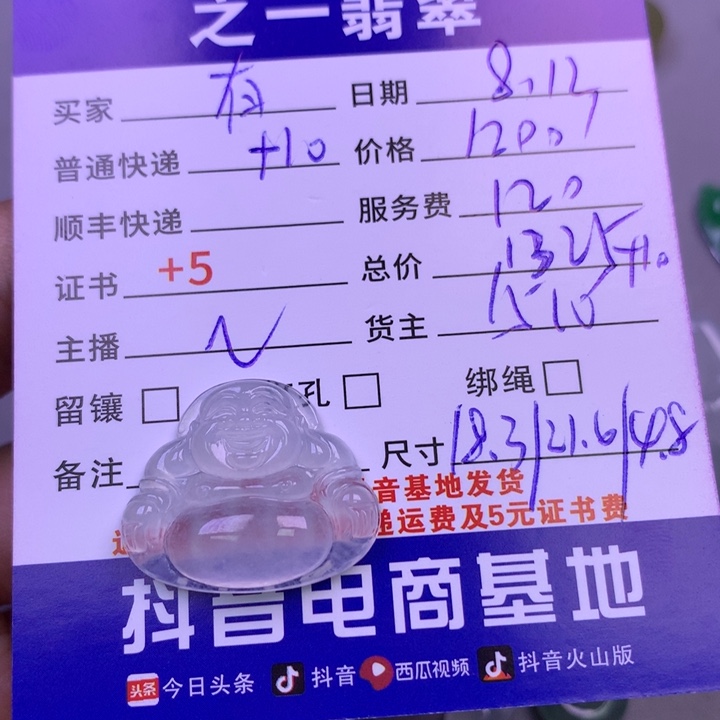 之一翡翠
买家 有 日期 8.12
普通快递 +10 价格 1200
顺丰快递 服务费 120
证书 +5 总价 1325+10
主播 货主 1510
留镶 孔 绑绳
备注 尺寸 18.3/21.6/4.8
音基地发货
递运费及5元证书费
抖音电商基地
头条 今日头条 抖音 西瓜视频 抖音火山版